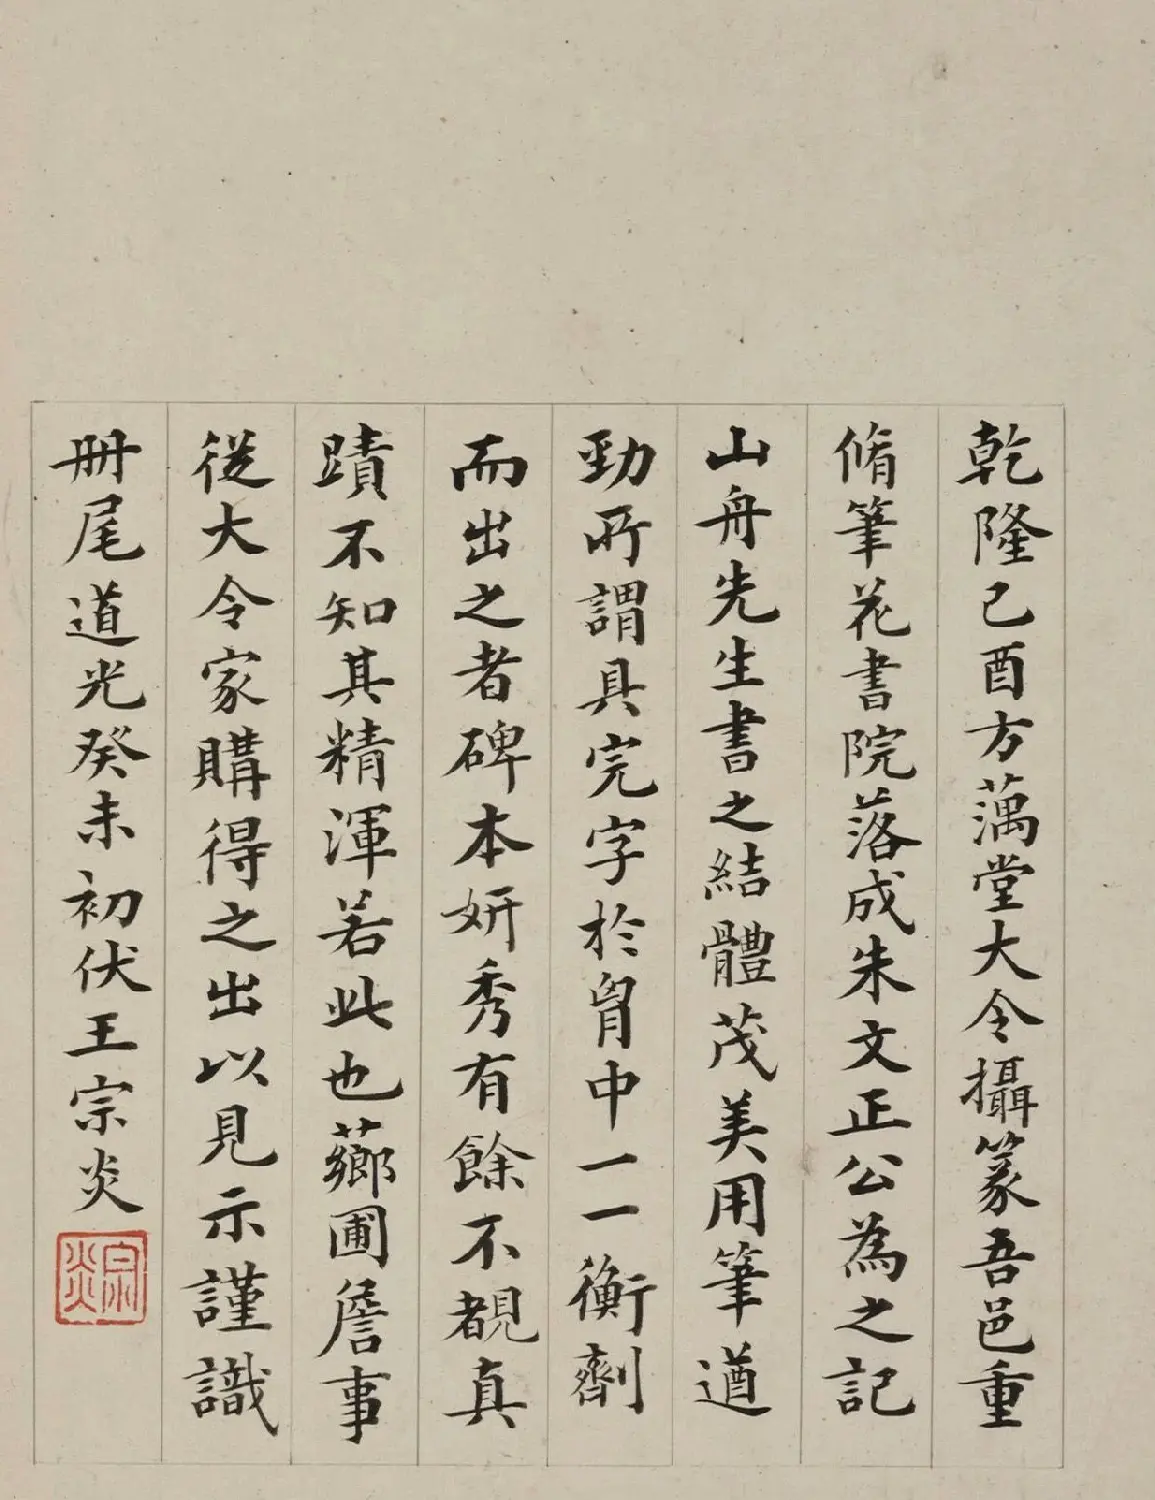 乾隆己酉方藕堂大令攝篆吾邑重
脩筆花書院落成朱文正公為之記
山舟先生書之結體茂美用筆遒
勁所謂具完字於胷中一一衡劑
而出之者碑本妍秀有餘不覩真
蹟不知其精渾若此也薌圃詹事
從大令家購得之出以見示謹識
冊尾道光癸未初伏王宗炎
宗炎